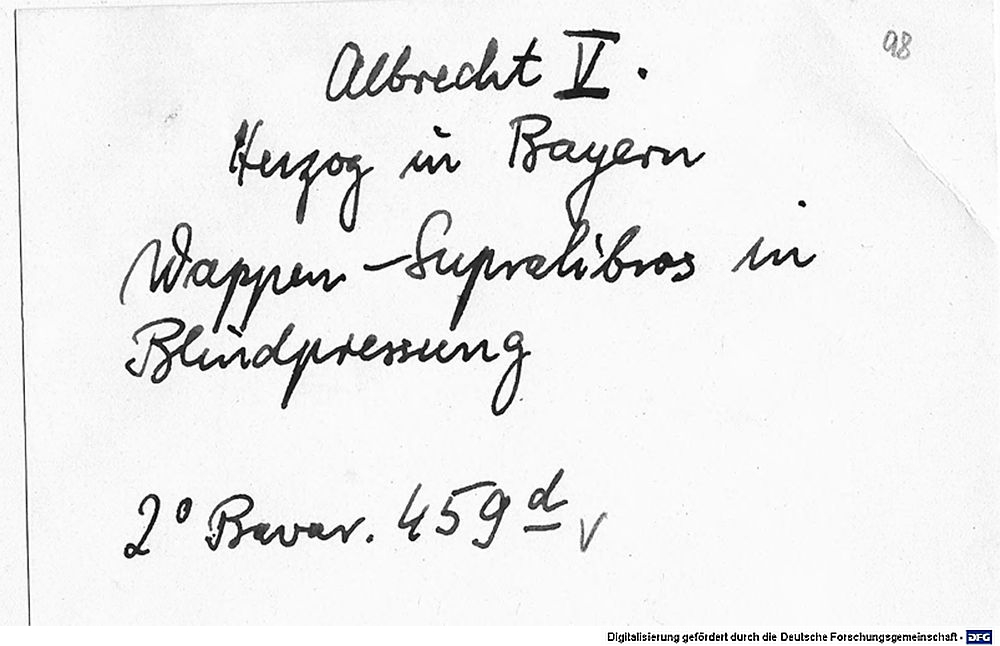 98
Albrecht V.
Herzog in Bayern
Wappen-Supralibros in
Blindpressung
2° Bavar. 459 d
Digitalisierung gefördert durch die Deutsche Forschungsgemeinschaft - DFG